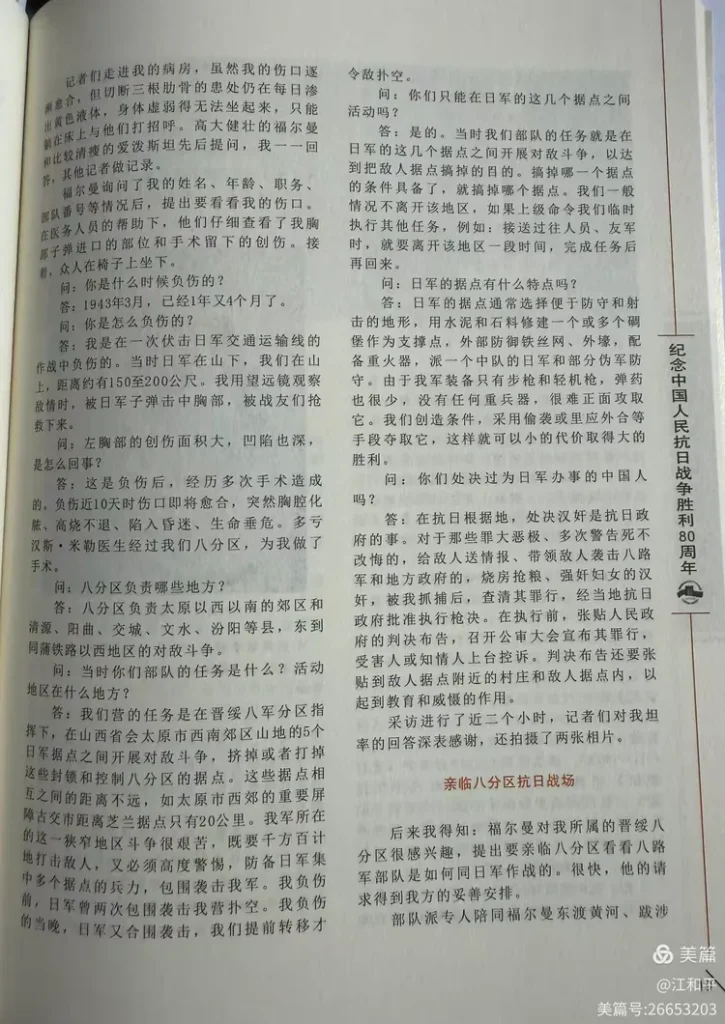 记者们走进我的病房，虽然我的伤口逐
渐愈合，但切断三根肋骨的患处仍在每日渗
出黄色液体，身体虚弱得无法坐起来，只能
躺在床上与他们打招呼。高大健壮的福尔曼
和比较清瘦的爱泼斯坦先后提问，我一一回
答，其他记者做记录。
福尔曼询问了我的姓名、年龄、职务、
部队番号等情况后，提出要看看我的伤口。
在医务人员的帮助下，他们仔细查看了我胸
部子弹进口的部位和手术留下的创伤。接
着，众人在椅子上坐下。
问：你是什么时候负伤的？
答：1943年3月，已经1年又4个月了。
问：你是怎么负伤的？
答：我是在一次伏击日军交通运输线的
作战中负伤的。当时日军在山下，我们在山
上，距离约有150至200公尺。我用望远镜观察
敌情时，被日军子弹击中胸部，被战友们抢
救下来。
问：左胸部的创伤面积大，凹陷也深，
是怎么回事？
答：这是负伤后，经历多次手术造成
的。负伤近10天时伤口即将愈合，突然胸腔化
脓、高烧不退、陷入昏迷、生命垂危。多亏
汉斯·米勒医生经过我们八分区，为我做了
手术。
问：八分区负责哪些地方？
答：八分区负责太原以西以南的郊区和
清源、阳曲、交城、文水、汾阳等县，东到
同蒲铁路以西地区的对敌斗争。
问：当时你们部队的任务是什么？活动
地区在什么地方？
答：我们营的任务是在晋绥八军分区指
挥下，在山西省会太原市西南郊区山地的5个
日军据点之间开展对敌斗争，挤掉或者打掉
这些封锁和控制八分区的据点。这些据点相
互之间的距离不远，如太原市西郊的重要屏
障古交市距离芝兰据点只有20公里。我军所在
的这一狭窄地区斗争很艰苦，既要千方百计
地打击敌人，又必须高度警惕，防备日军集
中多个据点的兵力，包围袭击我军。我负伤
前，日军曾两次包围袭击我营扑空。我负伤
的当晚，日军又合围袭击，我们提前转移才
令敌扑空。
问：你们只能在日军的这几个据点之间
活动吗？
答：是的。当时我们部队的任务就是在
日军的这几个据点之间开展对敌斗争，以达
到把敌人据点搞掉的目的。搞掉哪一个据点
的条件具备了，就搞掉哪个据点。我们一般
情况不离开该地区，如果上级命令我们临时
执行其他任务，例如：接送过往人员、友军
时，就要离开该地区一段时间，完成任务后
再回来。
问：日军的据点有什么特点吗？
答：日军的据点通常选择便于防守和射
击的地形，用水泥和石料修建一个或多个碉
堡作为支撑点，外部防御铁丝网、外壕，配
备重火器，派一个中队的日军和部分伪军防
守。由于我军装备只有步枪和轻机枪，弹药
也很少，没有任何重兵器，很难正面攻取
它。我们创造条件，采用偷袭或里应外合等
手段夺取它，这样就可以小的代价取得大的
胜利。
问：你们处决过为日军办事的中国人
吗？
答：在抗日根据地，处决汉奸是抗日政
府的事。对于那些罪大恶极、多次警告死不
改悔的，给敌人送情报、带领敌人袭击八路
军和地方政府的，烧房抢粮、强奸妇女的汉
奸，被我抓捕后，查清其罪行，经当地抗日
政府批准执行枪决。在执行前，张贴人民政
府的判决布告，召开公审大会宣布其罪行，
受害人或知情人上台控诉。判决布告还要张
贴到敌人据点附近的村庄和敌人据点内，以
起到教育和威慑的作用。
采访进行了近二个小时，记者们对我坦
率的回答深表感谢，还拍摄了两张相片。
亲临八分区抗日战场
后来我得知：福尔曼对我所属的晋绥八
分区很感兴趣，提出要亲临八分区看看八路
军部队是如何同日军作战的。很快，他的请
求得到我方的妥善安排。
部队派专人陪同福尔曼东渡黄河、跋涉
纪念中国人民抗日战争胜利80周年
美篇
@江和平
美篇号:26653203